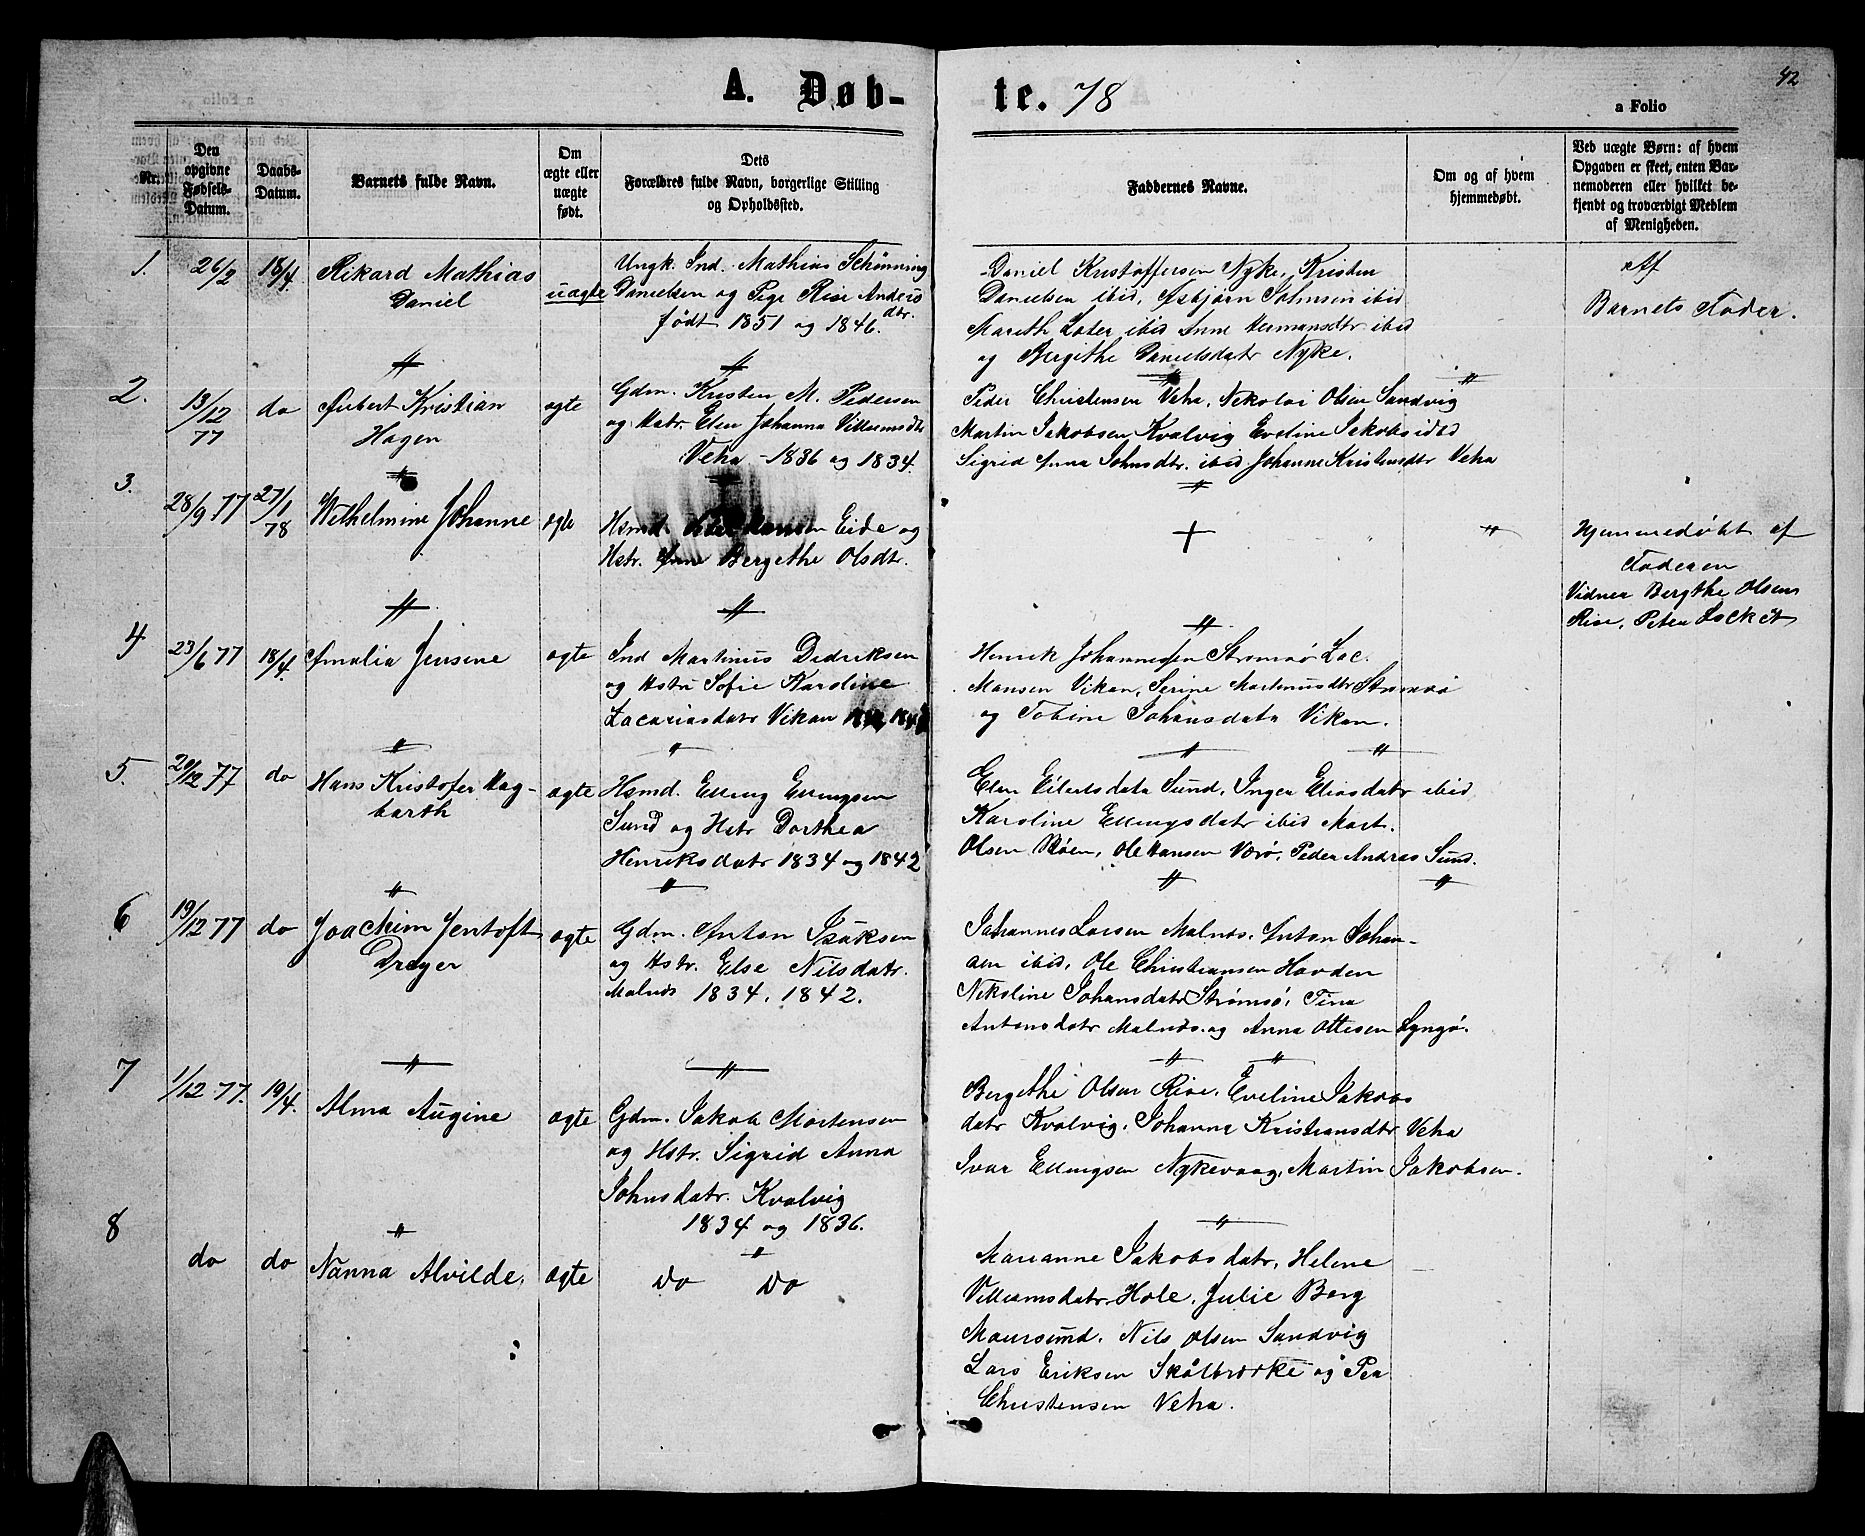 42
A. Døb-
te. 78
a Folio
Nr.
Den opgivne Fødsels-Datum.
Daabs-Datum.
Barnets fulde Navn.
Om ægte eller uægte født.
Dets Forældres fulde Navn, borgerlige Stilling og Opholdssted.
Faddernes Navne.
Om og af hvem hjemmedøbt.
Ved uægte Børn: af hvem Opgaven er skeet, enten Barnemoderen eller hvilket bekjendt og troværdigt Medlem af Menigheden.
1.
26/2
18/4
Rikard Mathias
Daniel
uægte
Ungk. Ind. Mathias Schønning
Danielsen og Pige Risø Anders
dtr.
født 1851 og 1846.
Daniel Kristoffersen Nyke, Kristen
Danielsen ibid, Asbjørn Johnsen ibid
Mareth Loder ibid Anne Hermansdtr ibid
og Bergithe Danielsdatr Nyke.
Af
Barnets Fader.
2.
13/12 77
do
Hagen
ægte
Gdm. Kristen M. Pedersen
og Hstr. Elen Johanna Villumsdtr
Veha 1836 og 1834.
Peder Christensen Veha, Nikolai Olsen Sandvig
Martin Jakobsen Kvalvig Eveline Jakobs ibid
Sigrid Anna Johnsdtr. ibid Johanne Kristensdtr Veha
3.
28/9 77
27/1 78
Wilhelmine Johanne
ægte
Hsmd. Eide og
Hstr. Anne Bergethe Olsdtr.
+
"
Hjemmedøbt af
Faderen
Vidner Bergthe Olsen
Risø, Peter Lockert
4
23/6 77
18/4
Amalia Jensine
ægte
Ind Martinus Didriksen
og Hstr Sofie Karoline
Zacariasdatr Vikan
Henrik Johannesen Strømsø Zac.
Mansen Vikan, Serine Martinusdtr Strømsø
og Tobine Johansdatr Vikan.
5.
20/12 77
do
Hans Kristofer Hag-
barth
ægte
Hsmd. Elling Ellingsen
Sund og Hstr Dorthea
Henriksdatr 1834 og 1842
Elen Eilertsdatr Sund, Inger Eliasdatr ibid
Karoline Ellingsdatr ibid Mart.
Olsen Skøen, Ole Hansen Værø, Peder Andreas Sund.
6
19/12 77
do
Joachim Jentoft
Dreyer
ægte
Gdm. Anton Isaksen
og Hstr. Else Nilsdatr.
Malnes 1834. 1842.
Johannes Larsen Malnes, Anton Johan-
sen ibid, Ole Christiansen Hovden
Nikoline Johansdatr Strømsø, Tina
Antonsdatr Malnes og Anna Ottesen Lyngø.
7
1/12 77.
19/4.
Alma Augine
ægte
Gdm. Jakob Mortensen
og Hstr. Sigrid Anna
Johnsdatr. Kvalvig
1834 og 1836.
Bergethe Olsen Risø, Eveline Jakobs
datr Kvalvig, Johanna Kristiansdtr Veha
Ivar Ellingsen Nykevaag, Martin Jakobsen.
8
do
do
Nanna Alvilde.
ægte
Do Do
Marianne Jakobsdatr, Helene
Villumsdatr. Hole, Julie Berg
Maursund. Nils Olsen Sandvig
Lars Eriksen Skålbrække og Per
Christensen Veha.